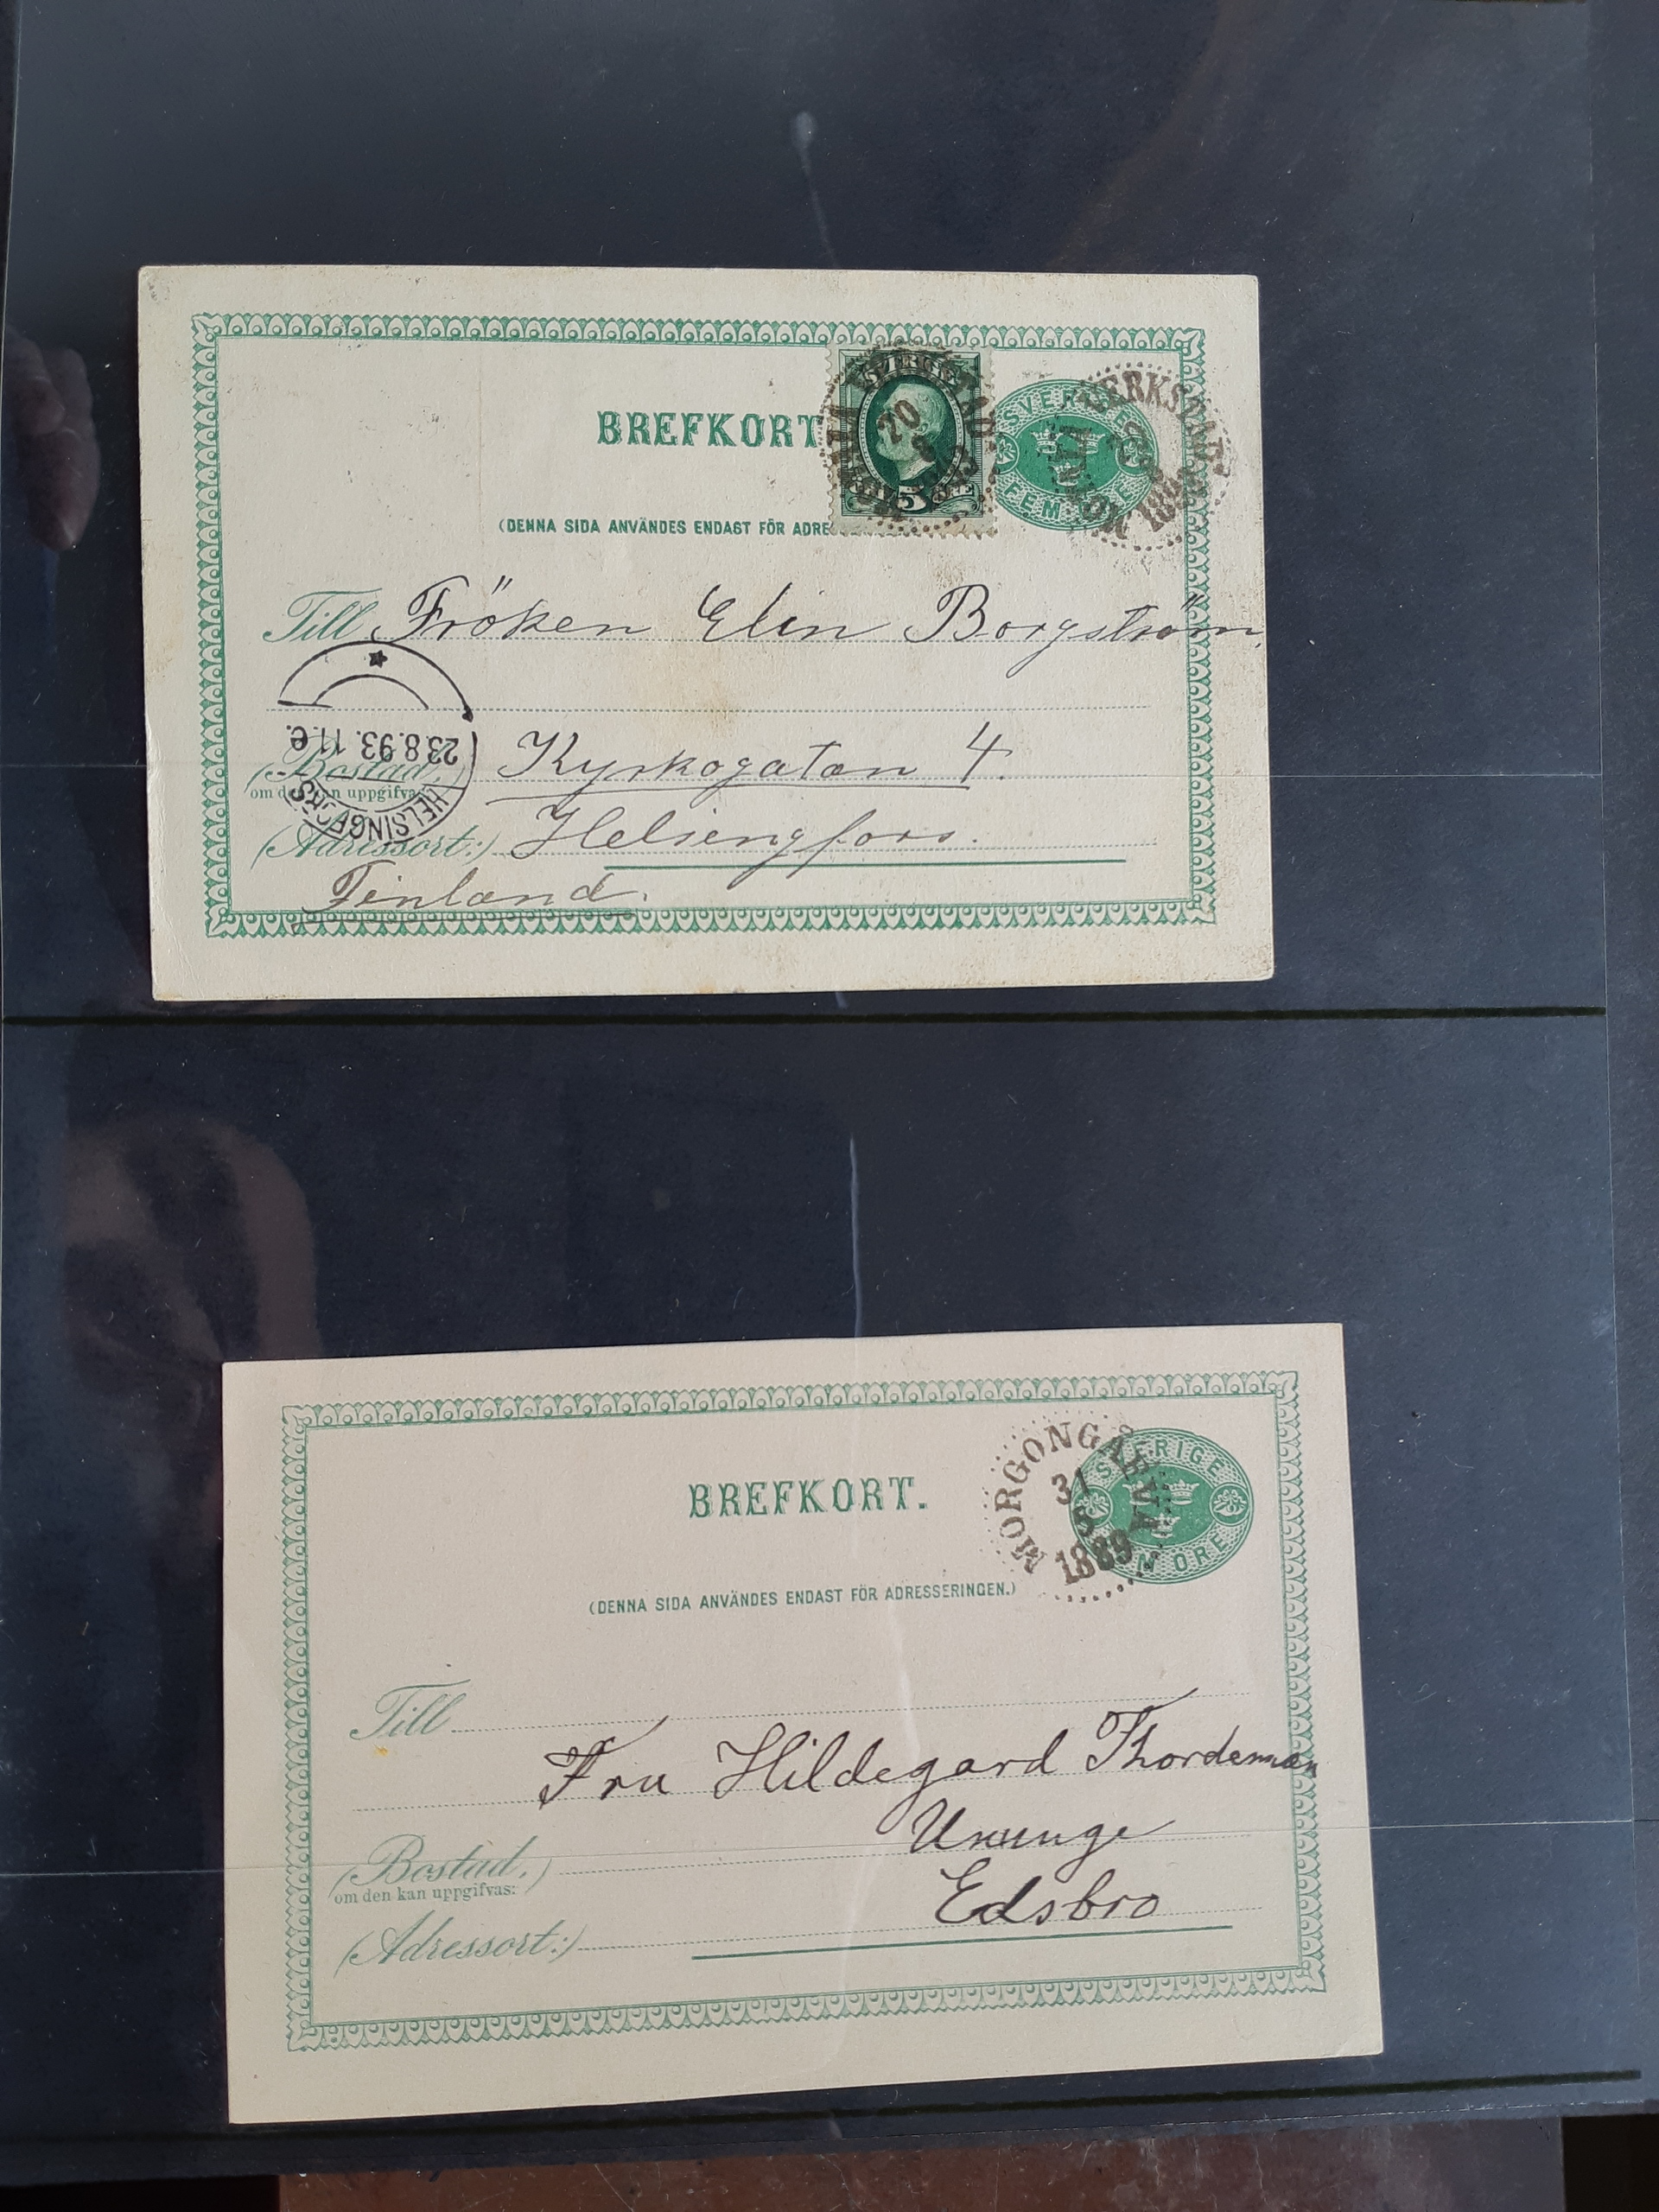 BREFKORT
SVERIGE
FEM
5
20
8
VERKSTAD
(DENNA SIDA ANVÄNDES ENDAST FÖR ADRE
Till Fröken Elin Borgström
23.8.93. 11.e.
HELSINGFORS
(Bostad,) Kyrkogatan 4.
om den kan uppgifvas
(Adressort:) Helsingfors.
Finland.
BREFKORT.
SVERIGE
M ÖRE
MORGONGÅFVA
31
8
1889
(DENNA SIDA ANVÄNDES ENDAST FÖR ADRESSERINGEN.)
Till
Fru Hildegard Thordeman
Ununge
(Bostad,)
om den kan uppgifvas:
Edsbro
(Adressort:)